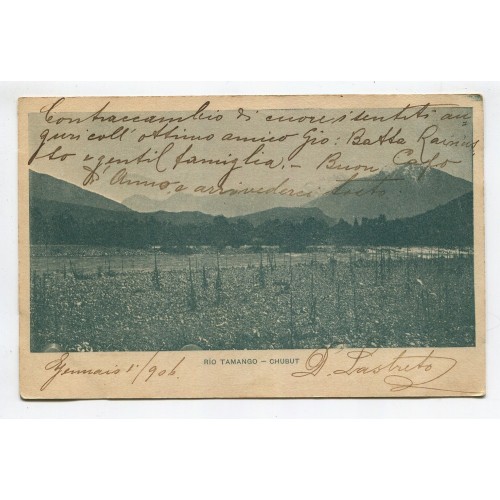 Contraccambio di cuore i sentiti au=
guri coll' ottimo amico Gio: Batta
sto e gentil famiglia. – Buon Capo
d'Anno e arrivederci tosto.
RÍO TAMANGO – CHUBUT
Gennaio 1º/906. D. Lastreto